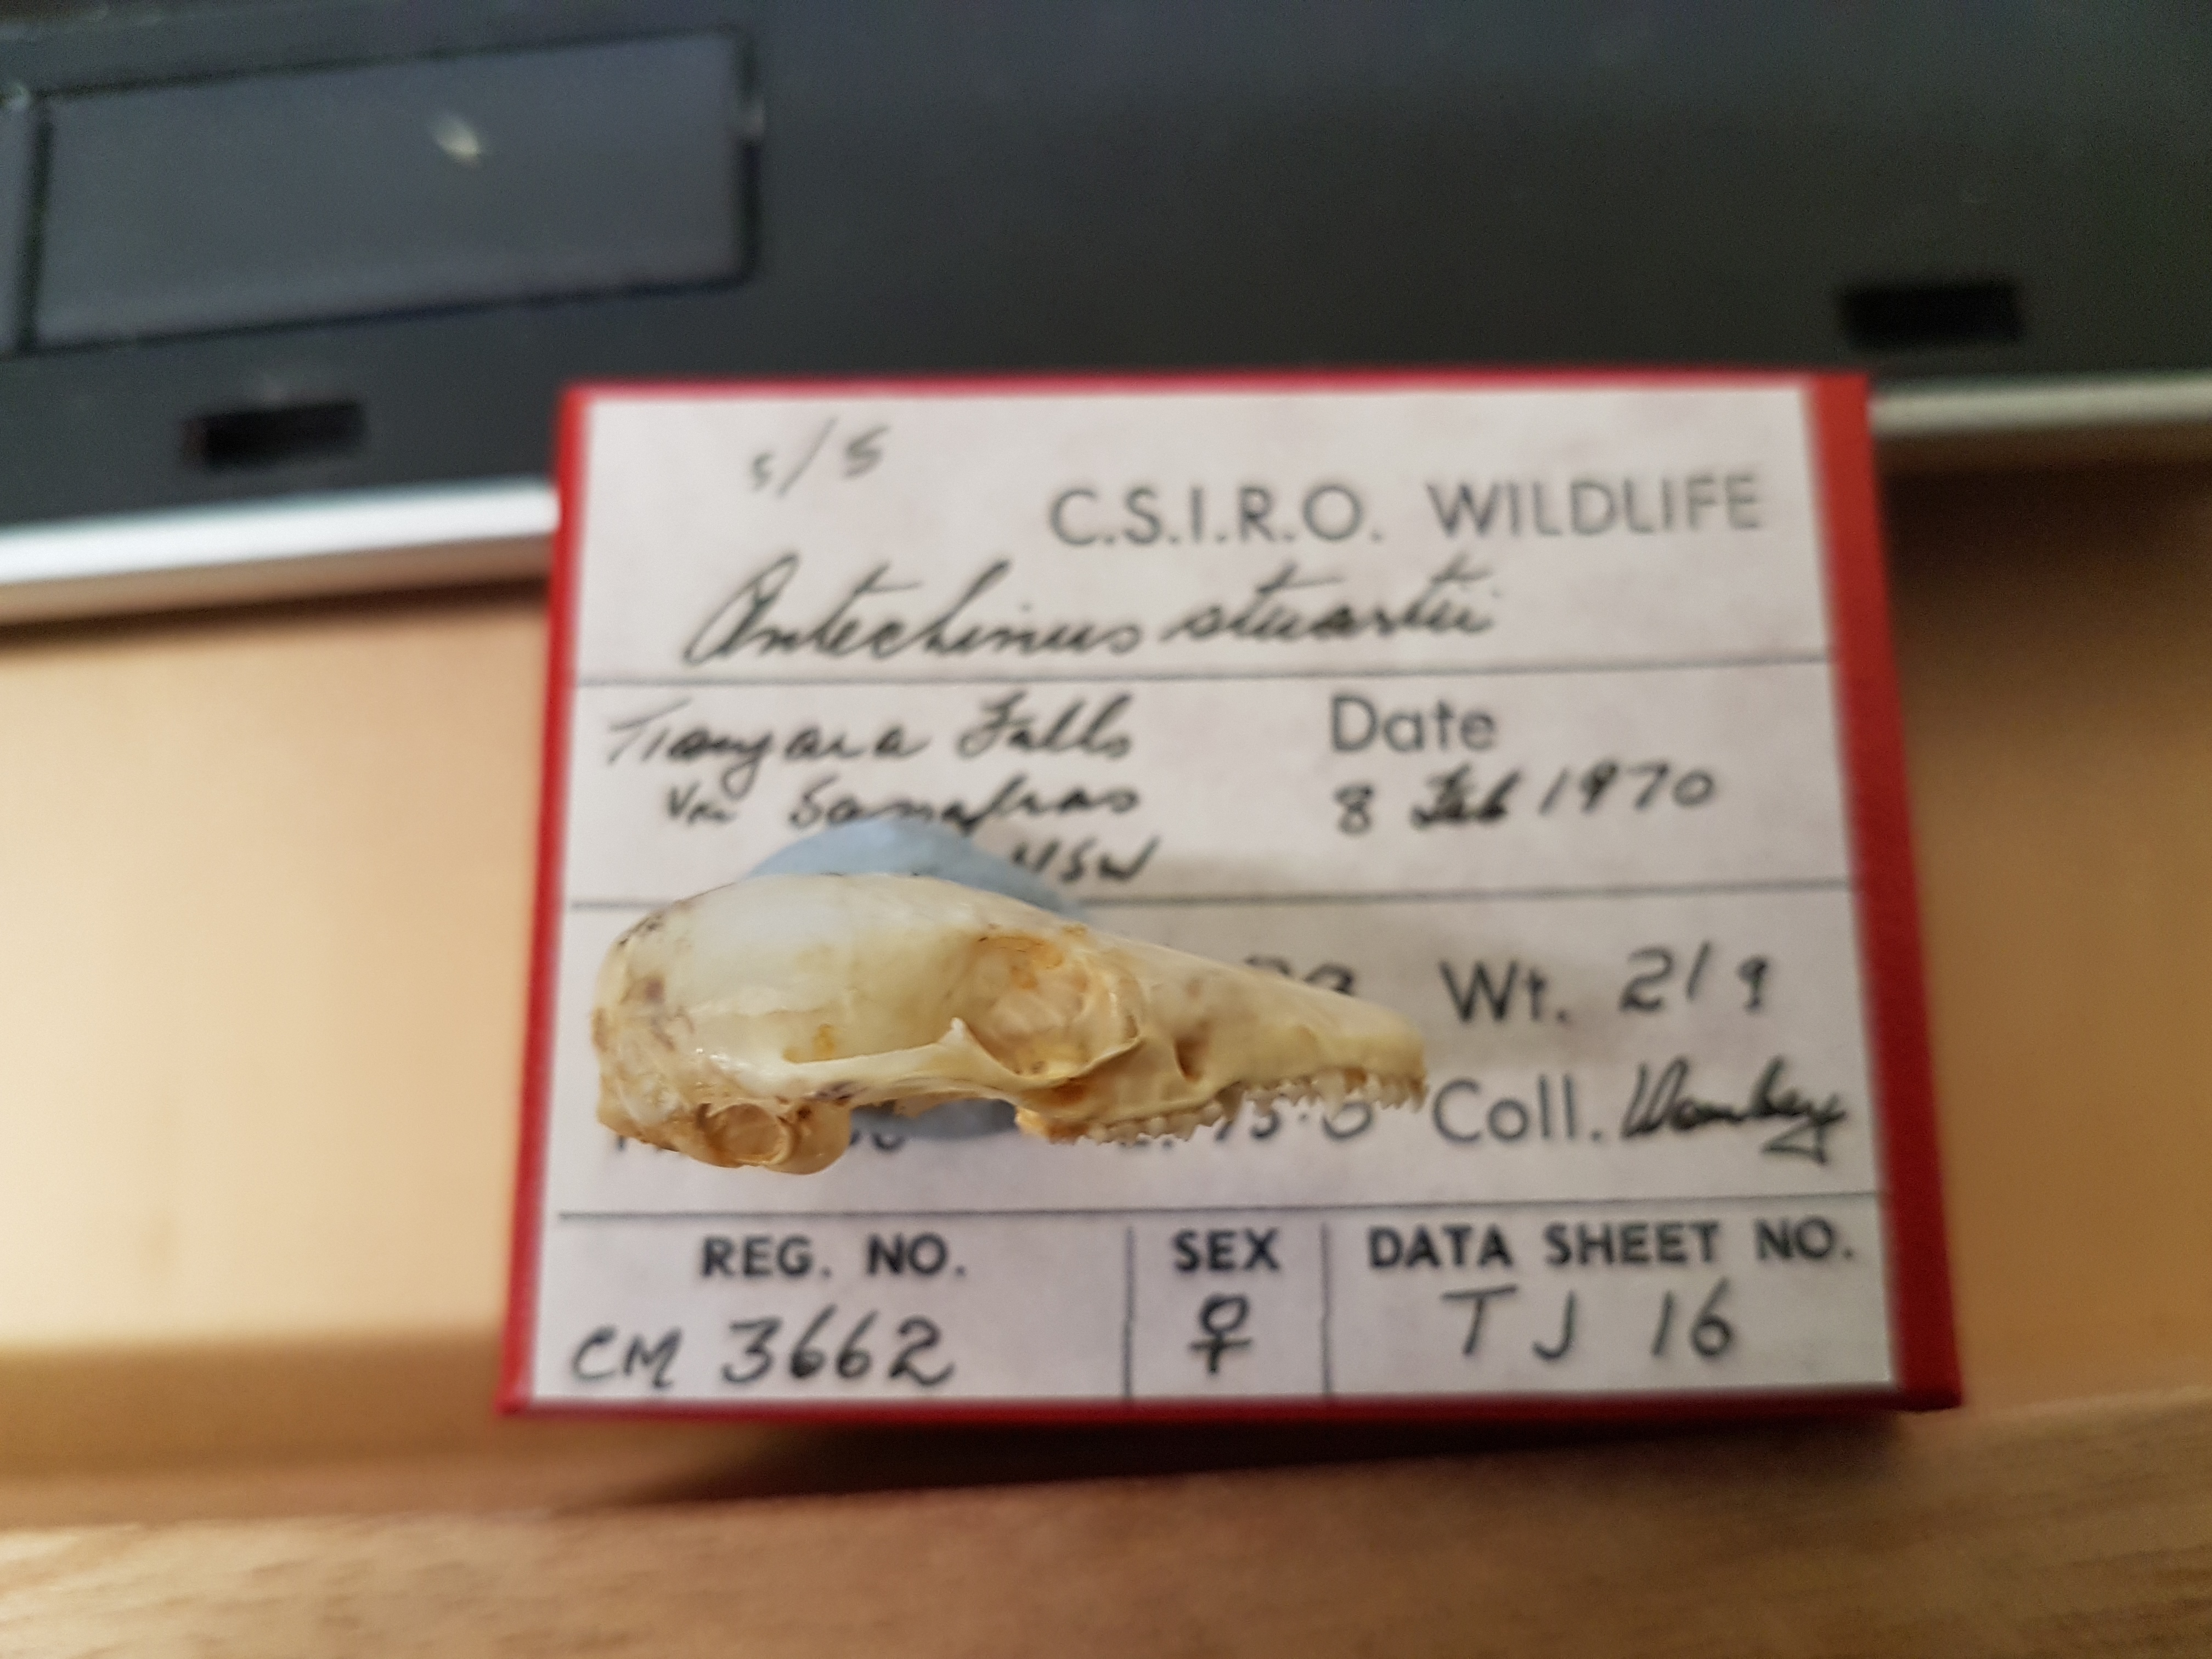 s/s
C.S.I.R.O. WILDLIFE
Antechinus stuartii
Tianjara Falls
Date
Vic Sassafras
8 Feb 1970
NSW
Wt. 21g
Coll. Wombey
REG. NO.
SEX
DATA SHEET NO.
CM 3662
♀
TJ 16